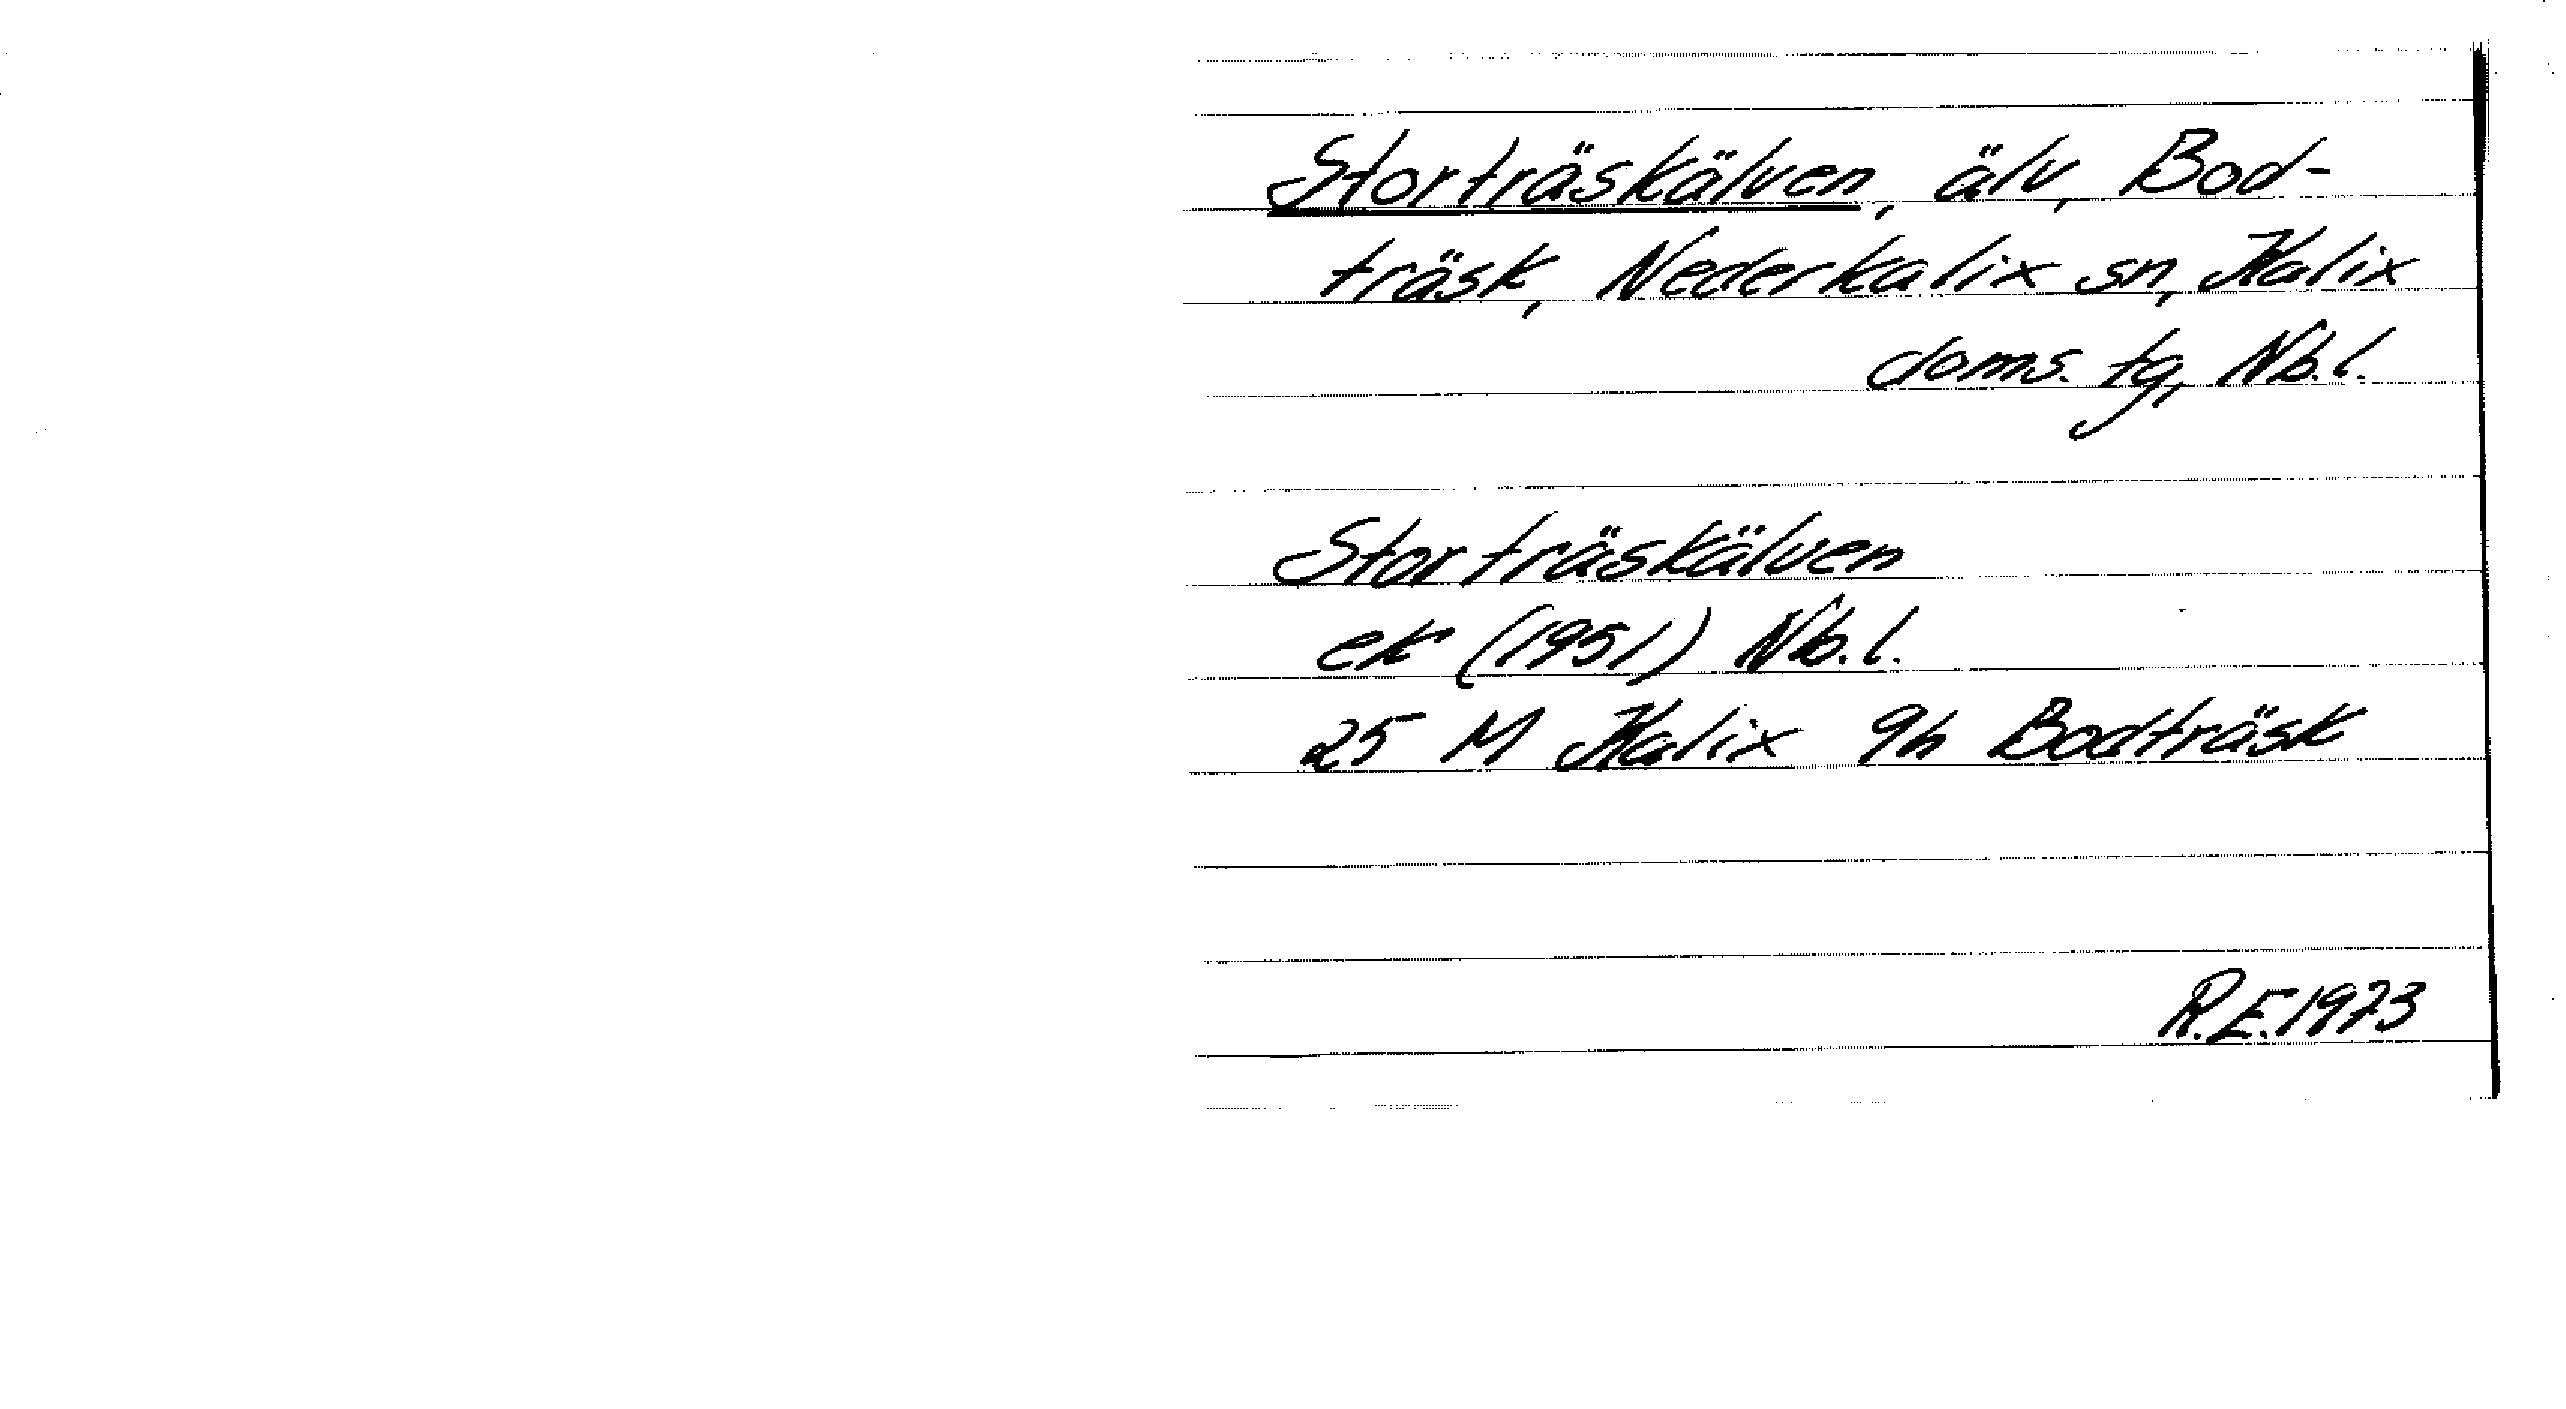 Storträskälven, älv, Bod-
träsk, Nederkalix sn, Kalix
doms. tg, Nb.l.
Storträskälven
ek (1951) Nb.l.
25 M Kalix 9h Bodträsk
R.E. 1973